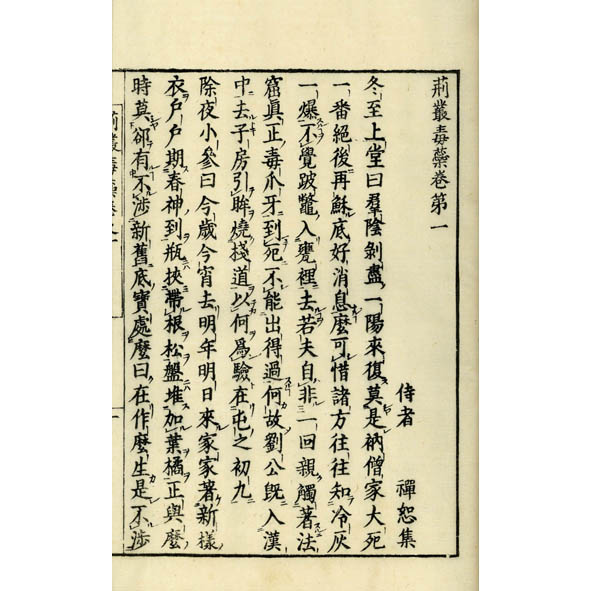 荊叢毒蘂卷第一
侍者　禪恕集
冬至上堂曰羣陰剝盡一陽來復莫是衲僧家大死
一番絕後再穌底好消息麼可惜諸方往往知冷灰
一爆不覺跛鼈入甕裡去若夫自非一回親觸著法
窟眞正毒爪牙到死不能出得過何故劉公旣入漢
中去子房引眸燒棧道以何爲驗在屯之初九
除夜小參曰今歲今宵去明年明日來家家著新樣
衣戶戶期春神到瓶挾帶根松盤堆加葉橘正與麼
時莫卻有不涉新舊底寶處麼曰在作麼生是不涉